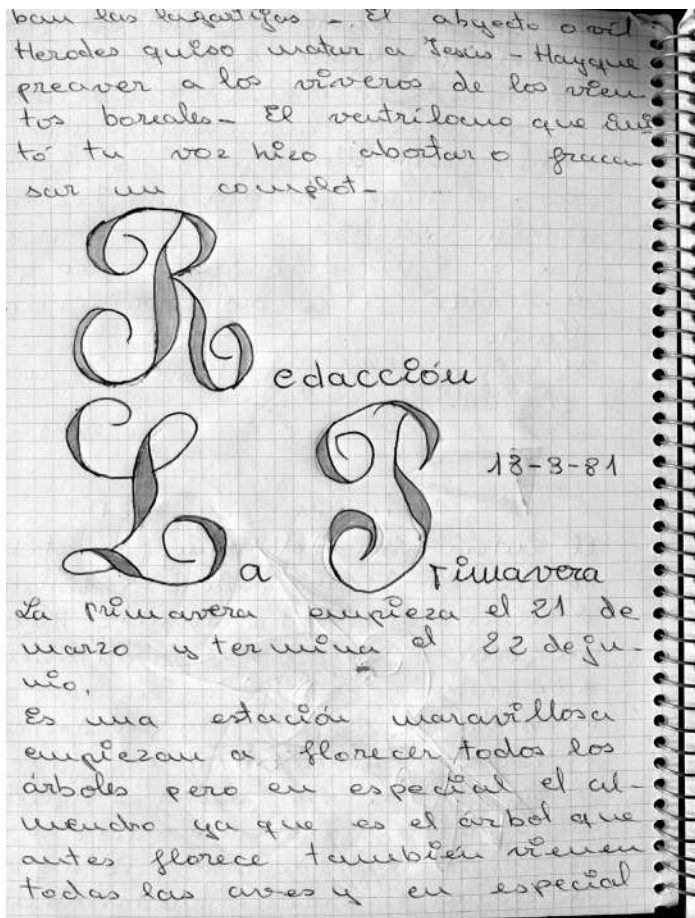 ban las lagartijas - El abyecto o vil
Herodes quiso matar a Jesús - Hay que
precaver a los viveros de los vien
tos boreales - El ventrílocuo que imi
tó tu voz hizo abortar o fraca
sar un complot -
Redacción
18-3-81
La Primavera
La primavera empieza el 21 de
marzo y termina el 22 de ju-
nio.
Es una estación maravillosa
empiezan a florecer todos los
árboles pero en especial el al-
mendro ya que es el árbol que
antes florece también vienen
todas las aves y en especial